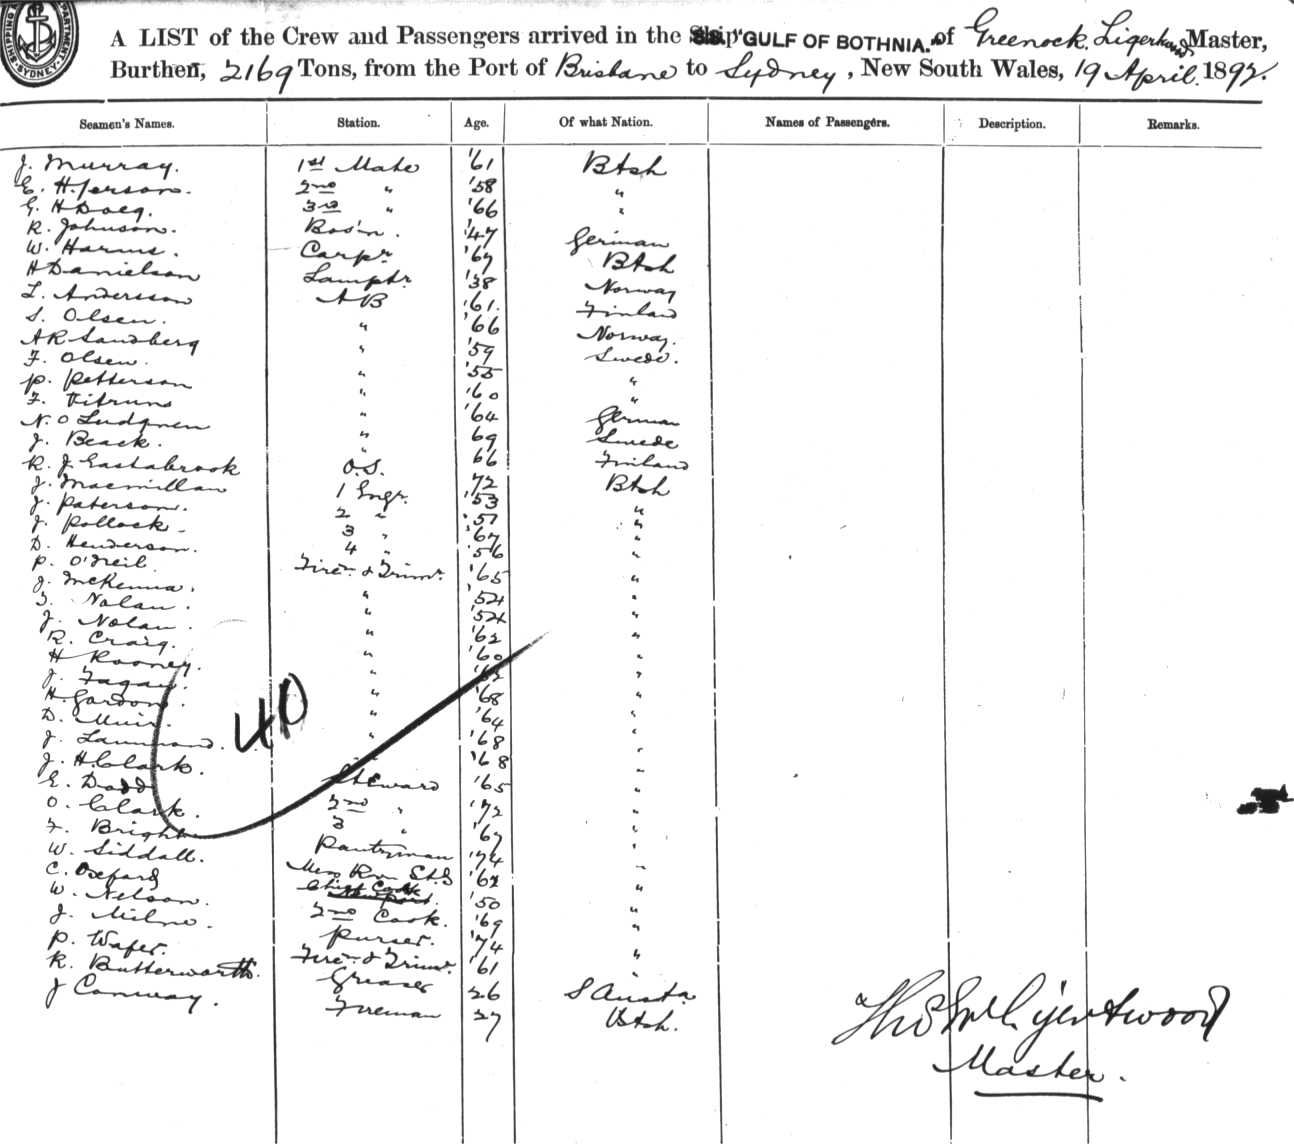 A LIST of the Crew and Passengers arrived in the S.S. "GULF OF BOTHNIA." of Greenock, Master,
Burthen, 2169 Tons, from the Port of Brisbane to Sydney, New South Wales, 19 April 1892.
Seamen's Names. Station. Age. Of what Nation. Names of Passengers. Description. Remarks.
J. Murray. 1st Mate '61 Btsh
E. H. Jerson. 2nd " '58 "
G. H 3rd " '66 "
R. Johnson. Bos'n. '47 German
W. Harms. Carpr '67 Btsh
H Danielson Lamptr '38 Norway
L. Andersson A B '61. Finland
S. Olsen. " '66 Norway.
A R Sandberg " '59 Swede.
F. Olsen. " '55 "
P. Petterson " '60 "
F. " '64 German
N. O Ludgren " 69 Swede
J. Beack. " 66 Finland
R. J. Eastabrook O.S. '72 Btsh
J. Macmillan 1 Engr. '53 "
J. Paterson. 2 " '51 "
J. Pollock 3 " '67 "
D. Henderson. 4 " '56 "
P. O'Neil. Fire. & Trimr. '65 "
J. McKenna. " '54 "
T. Nolan. " '54 "
J. Nolan. " '62 "
R. Craig. " '60 "
H Rooney. " "
J. Fagan. " '68 "
H. Gordon. " '64 "
D. Muir. " '68 "
J. '68 "
J. H. Clark. Steward '65 "
E. Dodd 2nd " '72 "
O. Clark. 3 " '67 "
F. Bright Pantryman '74 "
W. Siddall. Mess Rm Std '62 "
C. Oxford Chief Cook '50 "
W. Nelson. 2nd Cook. '69 "
J. Milne. Purser. '74 "
P. Wafer. Fire. & Trimr. '61 "
R. Butterworth. Greaser 26 S Austr
J Conway. Fireman 27 Btsh.
40
Master.